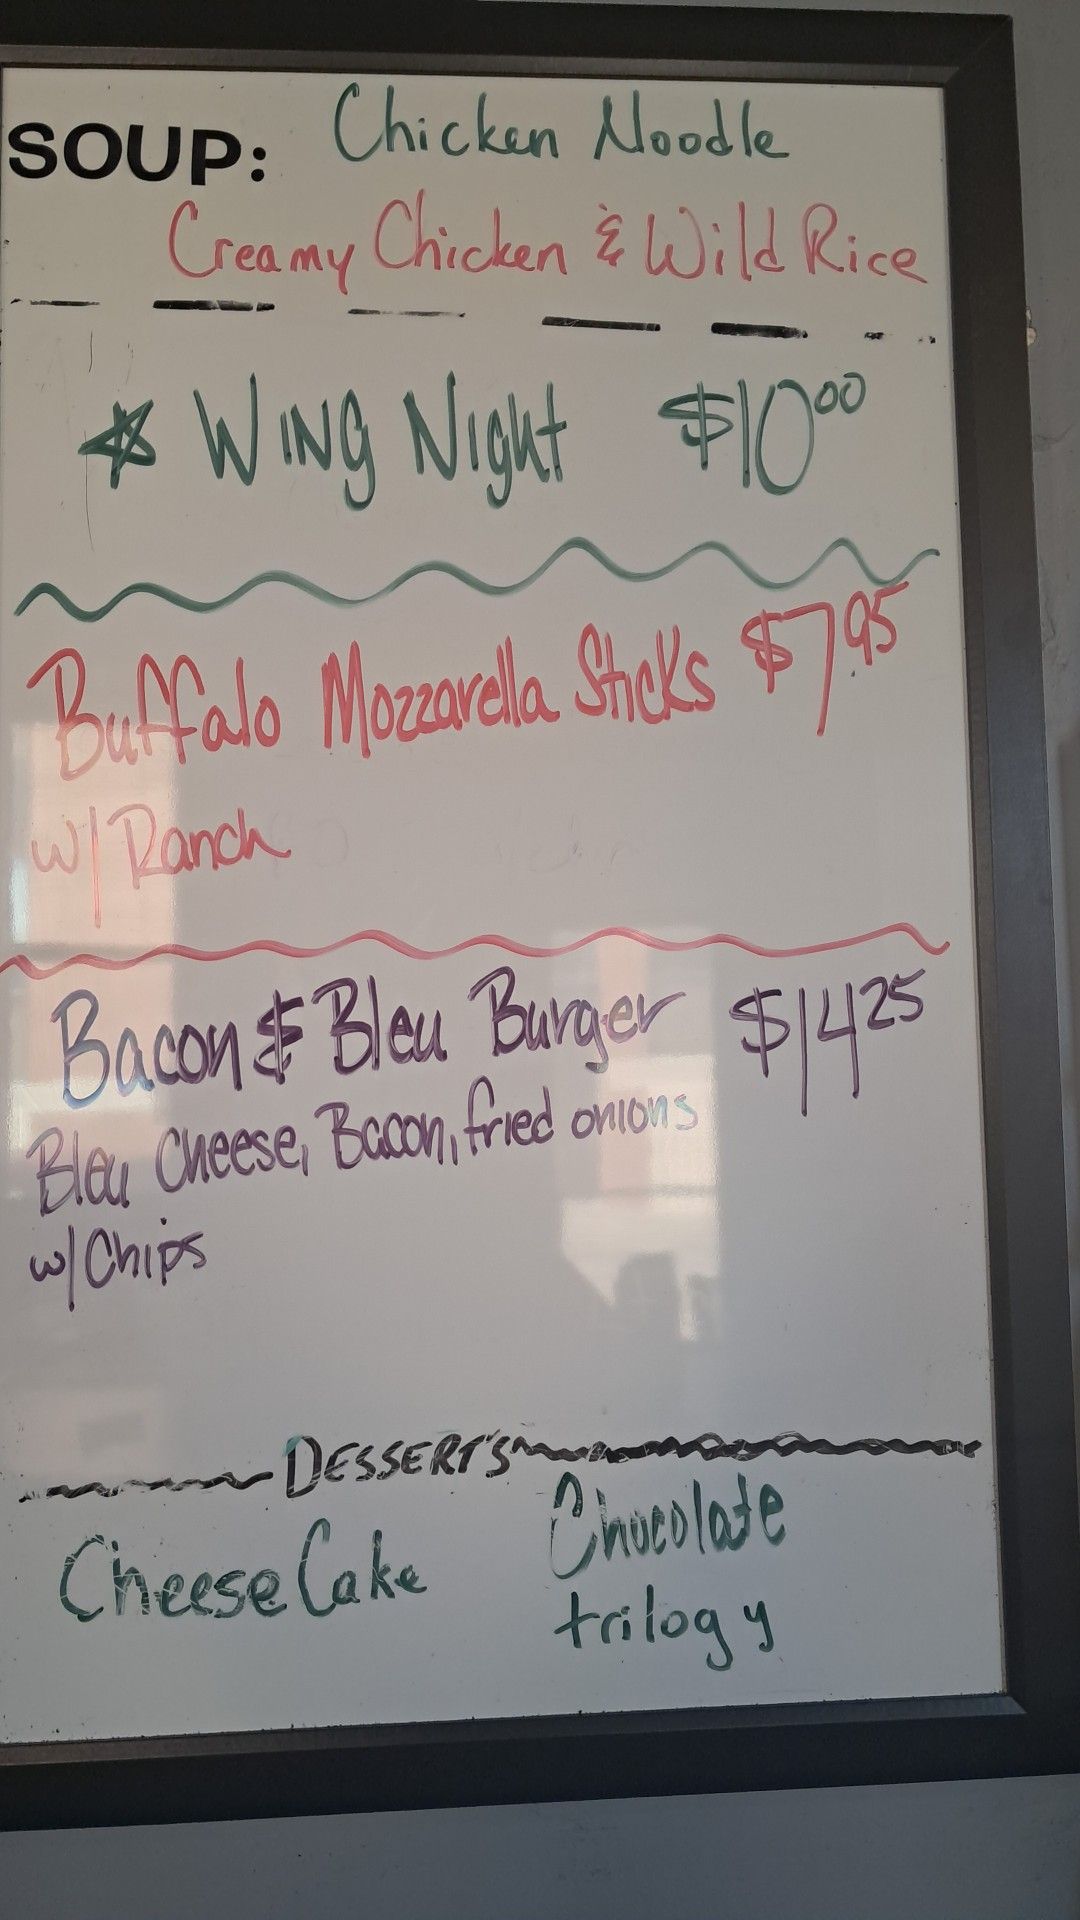 SOUP: Chicken Noodle
Creamy Chicken & Wild Rice
Wing Night $10.00
Buffalo Mozzarella Sticks $7.95
w/ Ranch
Bacon & Bleu Burger $14.25
Bleu Cheese, Bacon, fried onions
w/ Chips
DESSERT'S
Cheese Cake
Chocolate
trilogy